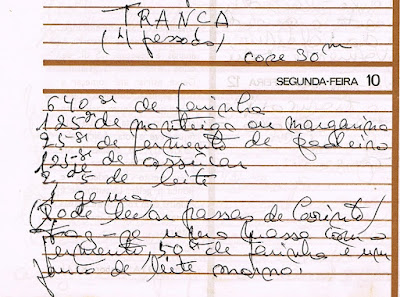 TRANÇA
(4 pessoas)
coze 30 m
SEGUNDA-FEIRA 10
640 gr de farinha
125 gr de manteiga ou margarina
25 gr de fermento de padeiro
125 gr de assúcar
2 de leite
1 gema
(Pode levar passas de Corinto)
Faz-se uma massa com o
fermento, 50 gr de farinha e um
pouco de leite morno.